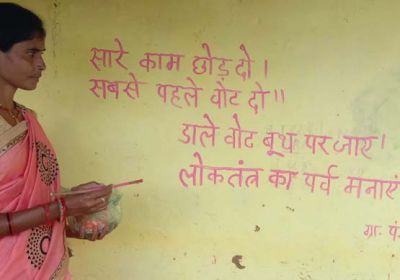 सारे काम छोड़ दो।
सबसे पहले वोट दो॥
डाले वोट बूथ पर जाए।
लोकतंत्र का पर्व मनाएं
ग्रा. पं